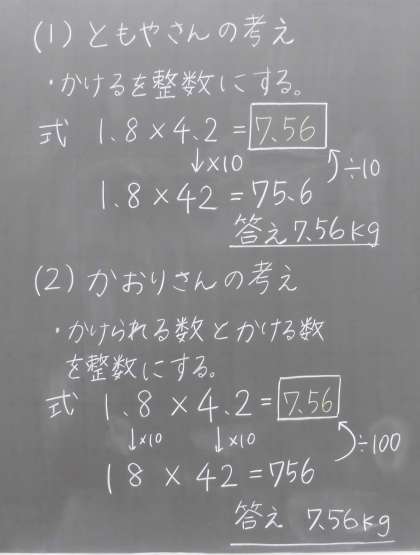 (1)ともやさんの考え
・かけるを整数にする。
式 1.8×4.2=7.56
↓×10 ÷10
1.8×42=75.6
答え7.56kg
(2)かおりさんの考え
・かけられる数とかける数
を整数にする。
式 1.8×4.2=7.56
↓×10 ↓×10 ÷100
18×42=756
答え 7.56kg